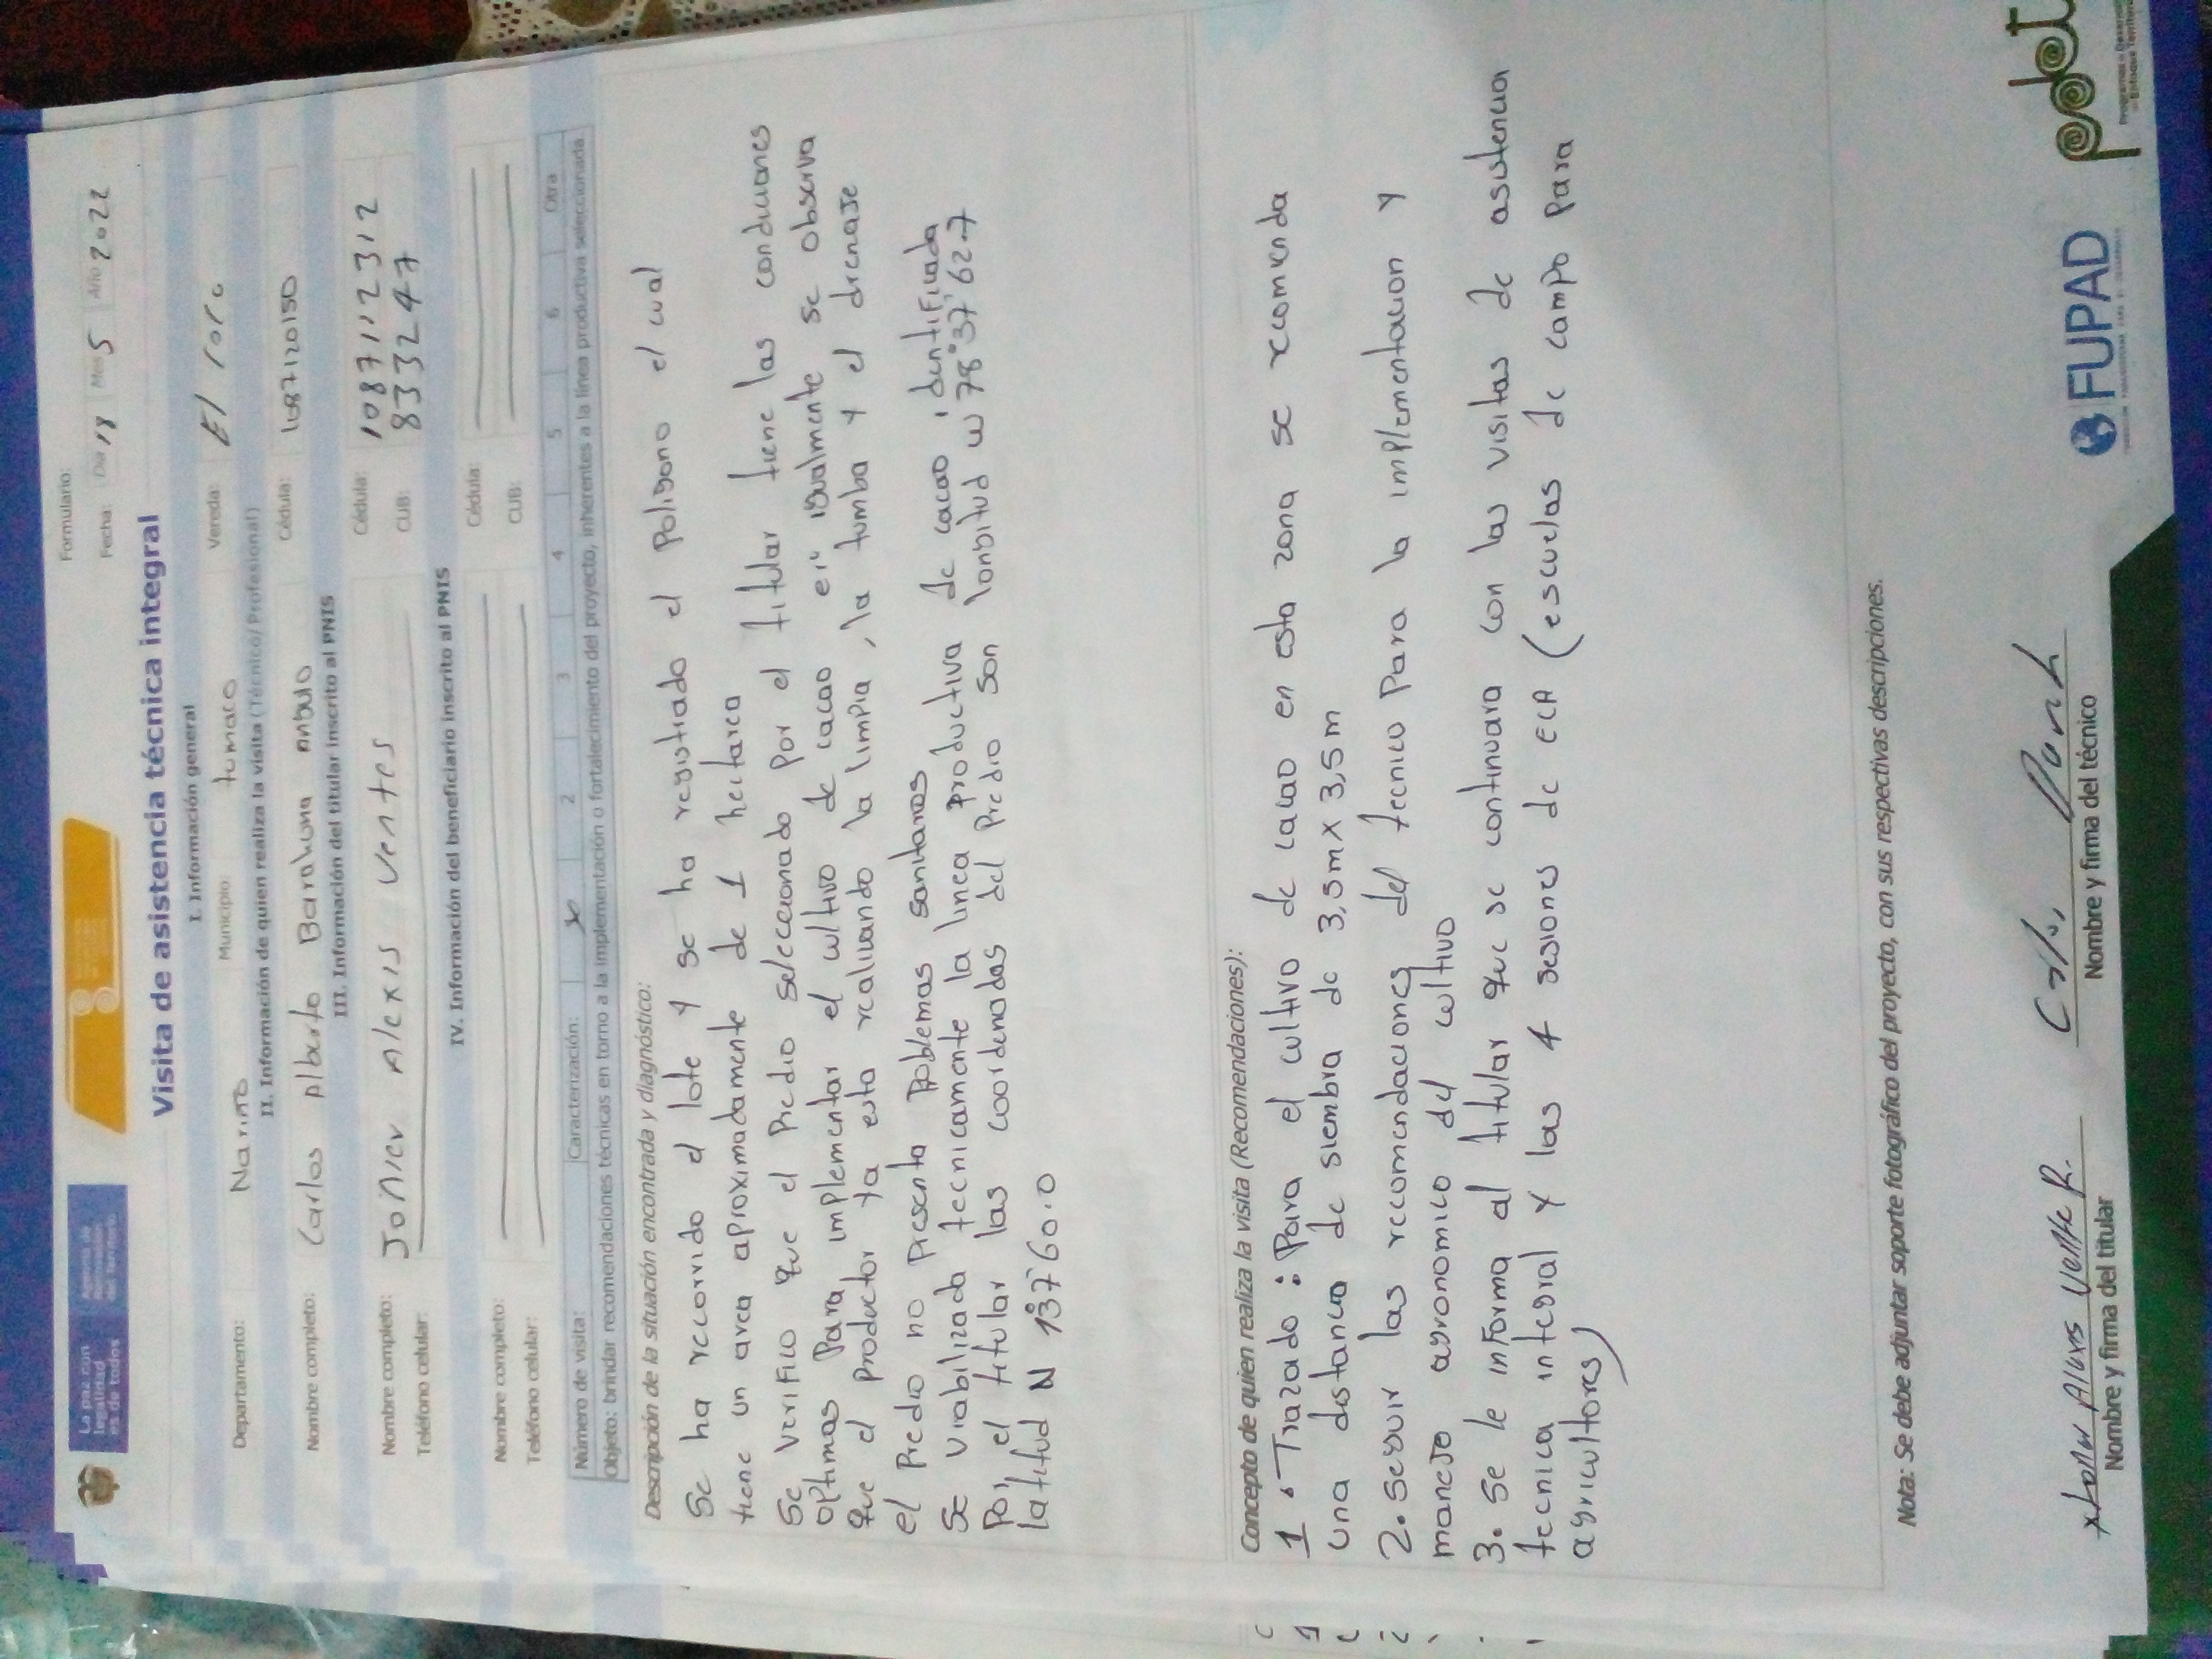 La paz con
legalidad
es de todos
Formulario:
Fecha: Día 18 Mes 5 Año 2022
Visita de asistencia técnica integral
I. Información general
Departamento: Nariño Municipio: tumaco Vereda: El
II. Información de quien realiza la visita (Técnico/Profesional)
Nombre completo: Carlos Alberto Barahona Angulo Cédula: 1087120150
III. Información del titular inscrito al PNIS
Nombre completo: Jonier Alexis Ventes Cédula: 1087112312
Teléfono celular: CUB: 8332447
IV. Información del beneficiario inscrito al PNIS
Nombre completo: Cédula:
Teléfono celular: CUB:
Número de visita: Caracterización: X 2 3 4 5 6 Otra
Objeto: brindar recomendaciones técnicas en torno a la implementación o fortalecimiento del proyecto, inherentes a la línea productiva seleccionada
Descripción de la situación encontrada y diagnóstico:
Se ha recorrido el lote y se ha registrado el Poligono el cual
tiene un area aproximadamente de 1 hectarea
Se verifico que el Predio seleccionado Por el titular tiene las condiciones
optimas Para implementar el cultivo de cacao en igualmente se observa
que el productor ya esta realizando la limpia, la tumba y el drenaje
el Predio no Presenta Problemas sanitarios
Se viabilizada tecnicamente la linea Productiva de cacao identificada
Por el titular las coordenadas del Predio son longitud w 78°37'62.7
latitud N 1°37'60.0
Concepto de quien realiza la visita (Recomendaciones):
1. Trazado: Para el cultivo de cacao en esta zona se recomienda
una distancia de siembra de 3,5m X 3,5m
2. Seguir las recomendaciones del tecnico Para la implementacion y
manejo agronomico del cultivo
3. Se le informa al titular que se continuara con las visitas de asistencia
tecnica integral y las 4 sesiones de ECA (escuelas de campo Para
agricultores)
Nota: Se debe adjuntar soporte fotográfico del proyecto, con sus respectivas descripciones.
Nombre y firma del titular
Nombre y firma del técnico
FUPAD
pdet